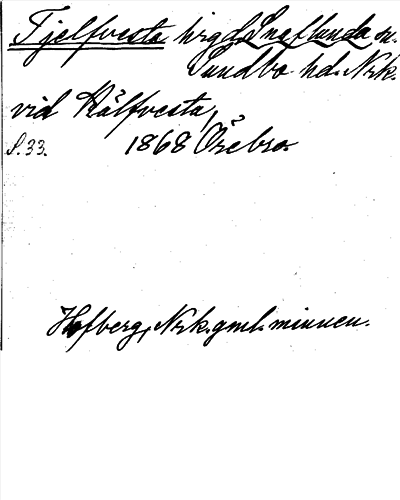 Tjelfvesta hrgd, Snaflunda sn.
Sundbo hd. Nrk.
vid Kälfvesta,
S. 33. 1868 Örebro.
Hofberg, Nrk. gml. minnen.